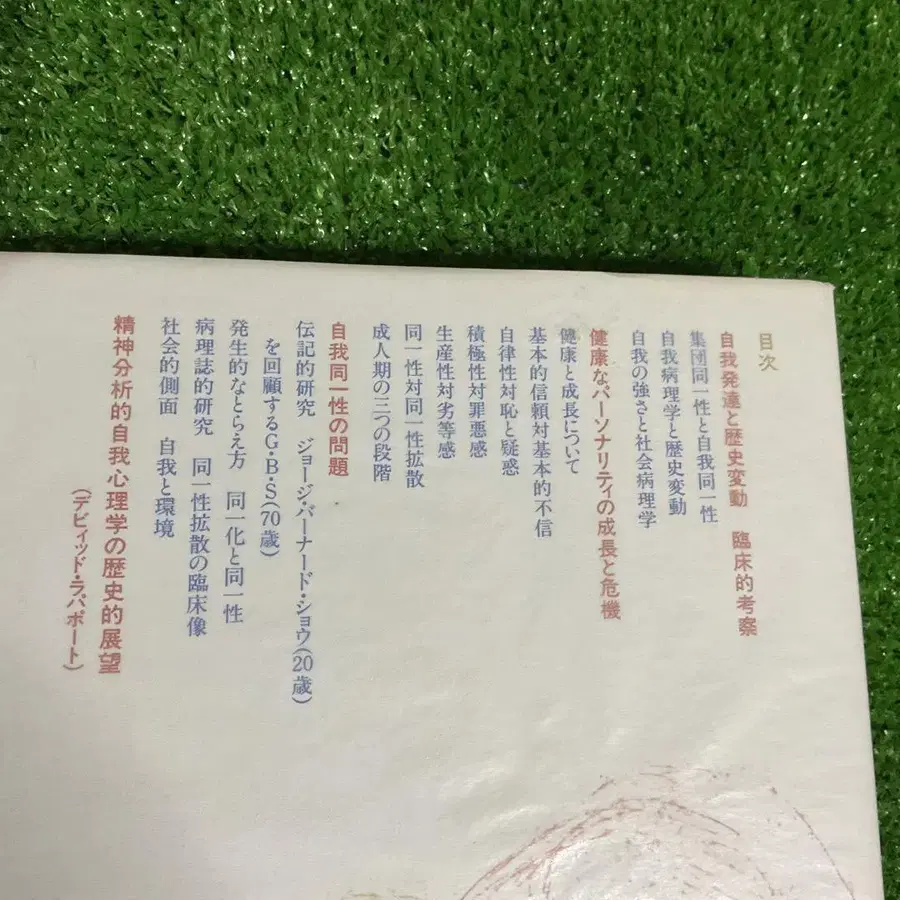 目次
自我発達と歴史変動　臨床的考察
集団同一性と自我同一性
自我病理学と歴史変動
自我の強さと社会病理学
健康なパーソナリティの成長と危機
健康と成長について
基本的信頼対基本的不信
自律性対恥と疑惑
積極性対罪悪感
生産性対劣等感
同一性対同一性拡散
成人期の三つの段階
自我同一性の問題
伝記的研究　ジョージ・バーナード・ショウ(20歳)
を回顧するG・B・S(70歳)
発生的なとらえ方　同一化と同一性
病理誌的研究　同一性拡散の臨床像
社会的側面　自我と環境
精神分析的自我心理学の歴史的展望
(デビィッド・ラパポート)